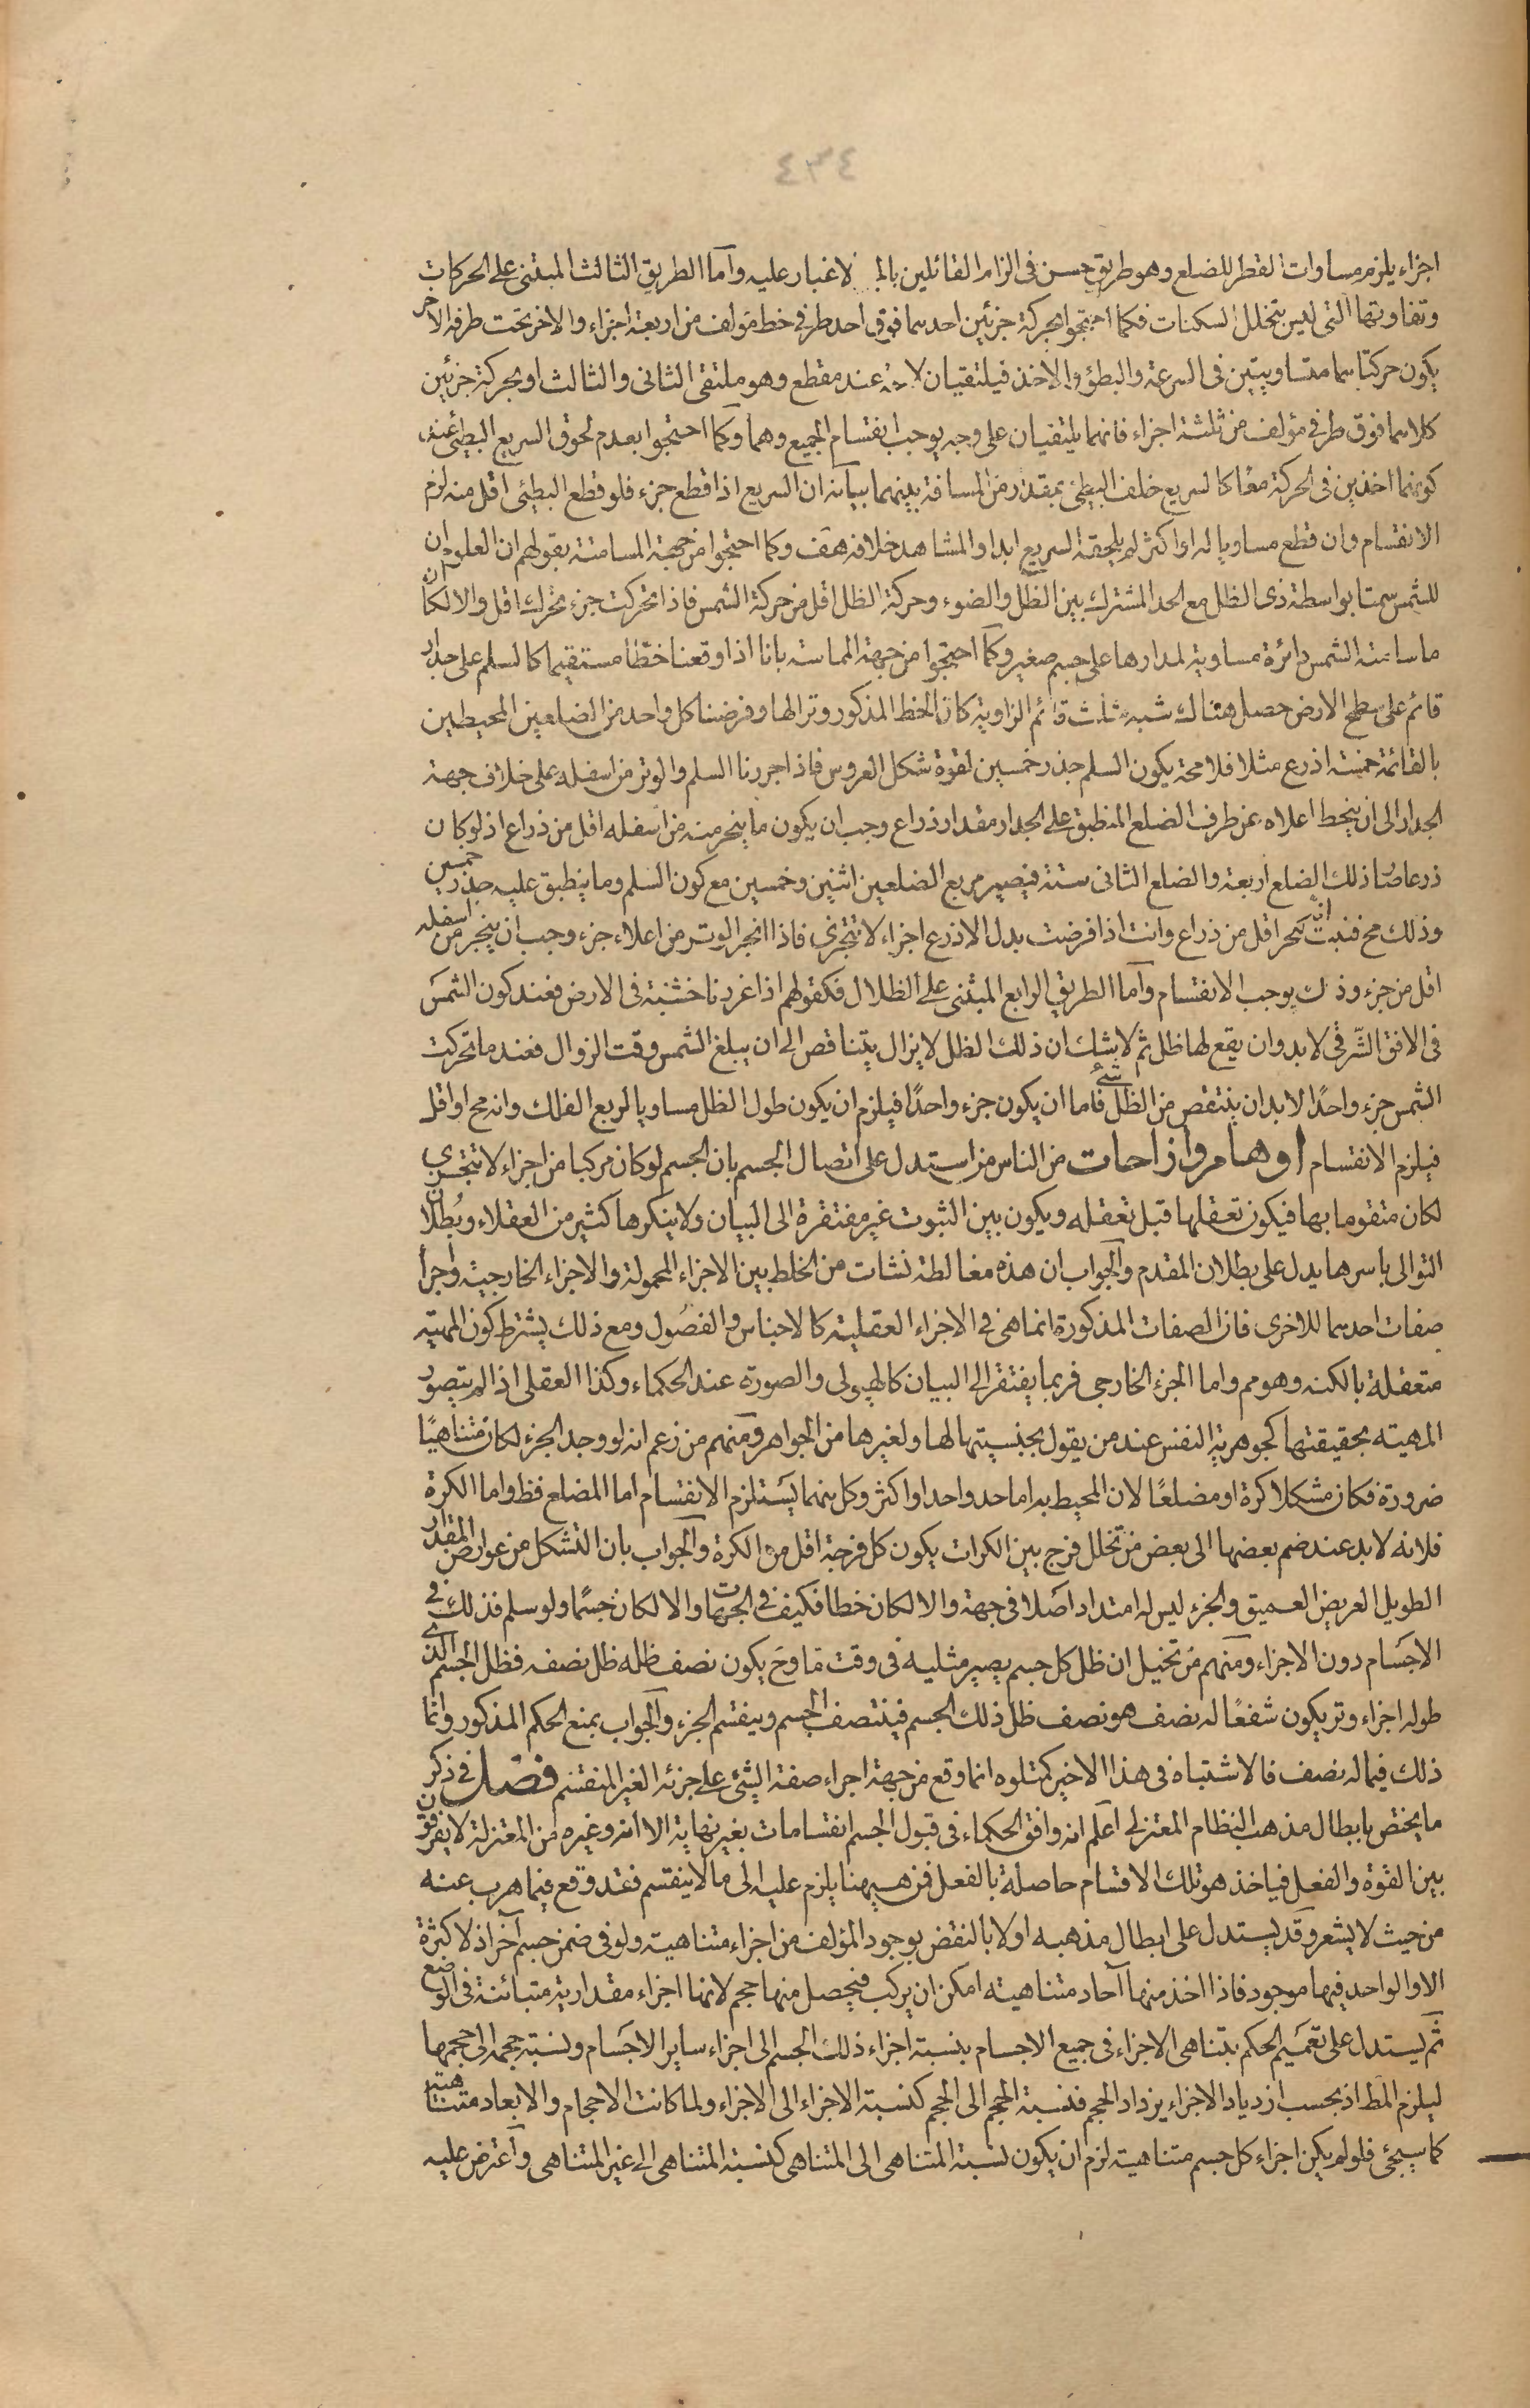 ٤٣٤
اجزاء يلزم مساوات القطر للضلع وهو طريق حسن فى الزام القائلين لا غبار عليه واما الطريق الثالث المبتنى على الحركات
وتفاوتها التى ليس بتخلل السكنات فكما احتجوا بحركة جزئين احدهما فوق احد طرفى خط مؤلف من اربعة اجزاء والاخر تحت طرفه الاخر
يكون حركتاهما متساويتين فى السرعة والبطؤ والاخذ فيلتقيان لا عند مقطع وهو ملتقى الثانى والثالث او بحركة جزئين
كلاهما فوق طرفى مؤلف من ثلثة اجزاء فانهما يلتقيان على وجه يوجب انقسام الجميع وهما وكما احتجوا بعدم لحوق السريع البطيئ عند
كونهما اخذين فى الحركة معا كالسريع خلف البطئ بمقدار من المسافة بينهما بيانه ان السريع اذا قطع جزء فلو قطع البطيئ اقل منه لزم
الانقسام وان قطع مساويا له او اكثر لم يلحقه السريع ابدا والمشاهد خلافه هف وكما احتجوا من جهة المسامتة بقولهم ان العلوم ان
للشمس سمتا بواسطة ذى الظل مع الحد المشترك بين الظل والضوء وحركة الظل اقل من حركة الشمس فاذا تحركت جزء تحرك اقل والا لكان
ما سامته الشمس دائرة مساوية لمدارها على جسم صغير وكما احتجوا من جهة المماسة بانا اذا وقعنا خطا مستقيما كالسلم على جدار
قائم على سطح الارض حصل هناك شبه مثلث قائم الزاوية كان الخط المذكور وترا لها وفرضنا كل واحد من الضلعين المحيطين
بالقائمة خمسة اذرع مثلا فلا محة يكون السلم جذر خمسين لقوة شكل العروس فاذا جررنا السلم والوتر من اسفله على خلاف جهة
الجدار الى ان ينحط اعلاه عن طرف الضلع المنطبق على الجدار مقدار ذراع وجب ان يكون ما ينجر منه من اسفله اقل من ذراع اذ لو كان
ذرعا صار ذلك الضلع اربعة والضلع الثانى ستة فيصير مربع الضلعين اثنين وخمسين مع كون السلم وما ينطبق عليه جذر خمسين
وذلك مح فثبت انه ينجر اقل من ذراع وانت اذا فرضت بدل الاذرع اجزاء لا تتجزى فاذا انجر الوتر من اعلاه جزء وجب ان ينجر من اسفله
اقل من جزء وذلك يوجب الانقسام واما الطريق الرابع المبتنى على الظلال فكقولهم اذا غرزنا خشبة فى الارض فعند كون الشمس
فى الافق الشرقى لا بد وان يقع لها ظل ثم لا شك ان ذلك الظل لا يزال يتناقص الى ان يبلغ الشمس وقت الزوال فعند ما تحركت
الشمس جزء واحدًا لا بد ان ينتقص من الظل شئ فاما ان يكون جزء واحدًا فيلزم ان يكون طول الظل مساويا لربع الفلك وانه مح او اقل
فيلزم الانقسام اوهام وازاحات من الناس من استدل على اتصال الجسم بان الجسم لو كان مركبا من اجزاء لا تتجزى
لكان متقوما بها فيكون تعقلها قبل تعقله ويكون بين الثبوت غير مفتقرة الى البيان ولا ينكرها كثير من العقلاء وبطلان
التوالى باسرها يدل على بطلان المقدم والجواب ان هذه مغالطة نشات من الخلط بين الاجزاء المحمولة والاجزاء الخارجية واجراء
صفات احدهما للاخرى فان الصفات المذكورة انما هى فى الاجزاء العقلية كالاجناس والفصول ومع ذلك يشترط كون المهية
متعقلة بالكنه وهو مم واما الجزء الخارجى فربما يفتقر الى البيان كالهيولى والصورة عند الحكماء وكذا العقلى اذا لم يتصور
المهية بحقيقتها كجوهرية النفس عند من يقول بجنسيتها لها ولغيرها من الجواهر ومنهم من زعم انه لو وجد الجزء لكان متناهيًا
ضرورة فكان مشكلا كرة او مضلعًا لان المحيط به اما حد واحد او اكثر وكل منهما يستلزم الانقسام اما المضلع فظ واما الكرة
فلانه لا بد عند ضم بعضها الى بعض من تخلل فرج بين الكرات يكون كل فرجة اقل من الكرة والجواب بان التشكل من عوارض المقدار
الطويل العريض العميق والجزء ليس له امتداد اصلا فى جهة والا لكان خطا فكيف فى الجهات والا لكان جسمًا ولو سلم فذلك فى
الاجسام دون الاجزاء ومنهم من تخيل ان ظل كل جسم يصير مثليه فى وقت ما وح يكون نصف ظله ظل نصفه فظل الجسم الذى
طوله اجزاء وتر يكون شفعًا له نصف هو نصف ظل ذلك الجسم فينتصف الجسم وينقسم الجزء والجواب بمنع الحكم المذكور وانما
ذلك فيما له نصف فالاشتباه فى هذا الاخير كمتلوه انما وقع من جهة اجراء صفة الشئ على جزئه الغير المنقسم فصل فى ذكر
ما يختص بابطال مذهب النظام المعتزلى اعلم انه وافق الحكماء فى قبول الجسم انقسامات بغير نهاية الا انه وغيره من المعتزلة لا يفرقون
بين القوة والفعل فياخذ هو تلك الاقسام حاصلة بالفعل فمن هيهنا يلزم عليه الى ما لا ينقسم فقد وقع فيما هرب عنه
من حيث لا يشعر وقد يستدل على ابطال مذهبه اولا بالنقض بوجود المؤلف من اجزاء متناهية ولو فى ضمن جسم آخر اذ لا كثرة
الا والواحد فيها موجود فاذا اخذ منها آحاد متناهية امكن ان يركب فيحصل منها حجم لانها اجزاء مقدارية متبائنة فى الوضع
ثم يستدل على تعميم الحكم بتناهى الاجزاء فى جميع الاجسام بنسبة اجزاء ذلك الجسم الى اجزاء ساير الاجسام ونسبة حجمه الى حجمها
ليلزم المط اذ بحسب ازدياد الاجزاء يزداد الحجم فنسبة الحجم الى الحجم كنسبة الاجزاء الى الاجزاء ولما كانت الاحجام والابعاد متناهية
كما سيجئ فلو لم يكن اجزاء كل جسم متناهية لزم ان يكون نسبة المتناهى الى المتناهى كنسبة المتناهى الى غير المتناهى واعترض عليه